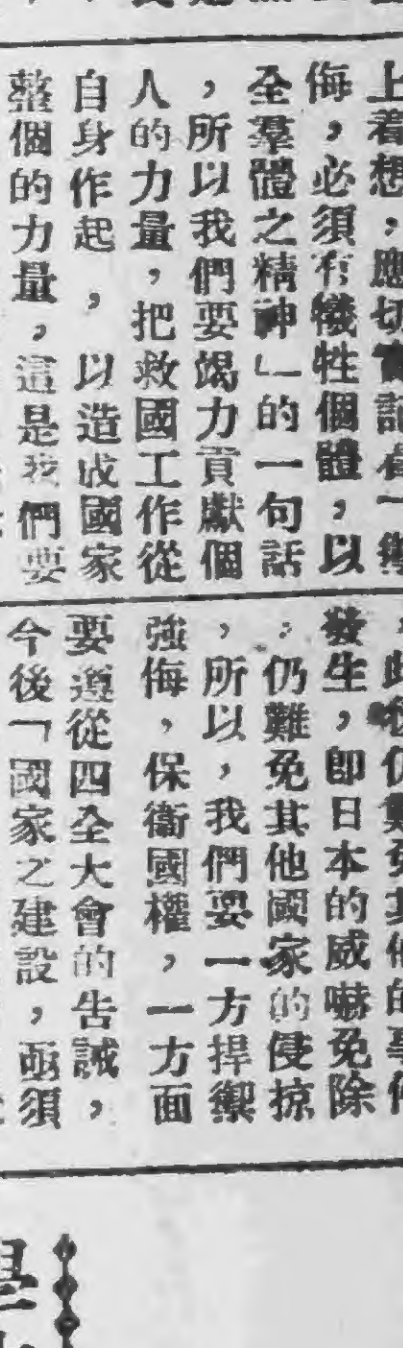 上着想，應切實記着「禦
侮，必須有犧牲個體，以
全羣體之精神」的一句話
，所以我們要竭力貢獻個
人的力量，把救國工作從
自身作起，以造成國家
整個的力量，這是我們要
，此後仍難免其他的事件
發生，即日本的威嚇免除
，仍難免其他國家的侵掠
，所以，我們要一方捍禦
強侮，保衞國權，一方面
要遵從四全大會的告誡，
今後「國家之建設，亟須